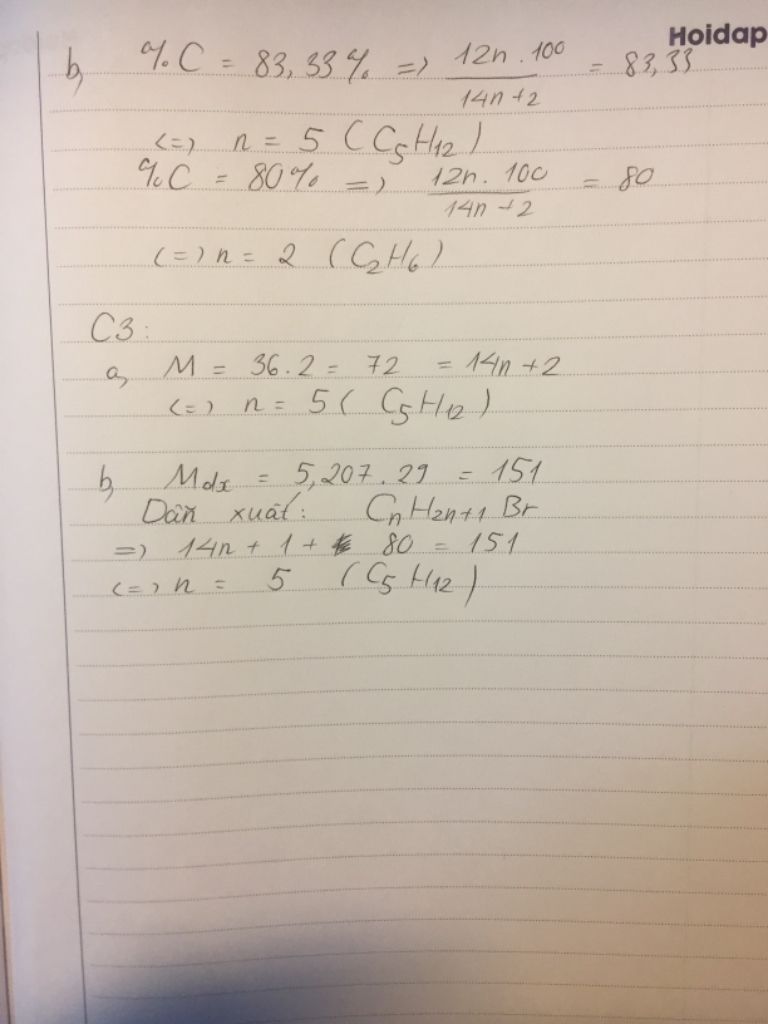 Hoidap
b, %C = 83,33% => 12n.100 / 14n+2 = 83,33
<=> n = 5 (C5H12)
%C = 80% => 12n.100 / 14n+2 = 80
<=> n = 2 (C2H6)
C3:
a, M = 36.2 = 72 = 14n+2
<=> n = 5 (C5H12)
b, Mdx = 5,207.29 = 151
Dẫn xuất: CnH2n+1 Br
=> 14n + 1 + 80 = 151
<=> n = 5 (C5H12)